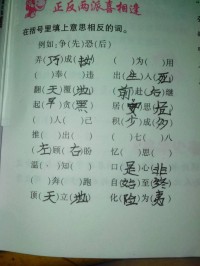 正反两派喜相逢
在括号里填上意思相反的词。
例如:争(先)恐(后)
弄(巧)成(拙) ( )为( )用
( )奉( )违 出(生)入(死)
翻(天)覆(地) (前)赴(后)继
起(早)贪(黑) 居(安)思(危)
( )人( )己 积(少)成(多)
推( )出( ) ( )七( )八
(左)顾(右)盼 忆( )思( )
温( )知( ) 口(是)心(非)
( )奔( )跑 自(始)至(终)
顶(天)立(地) 化(险)为(夷)